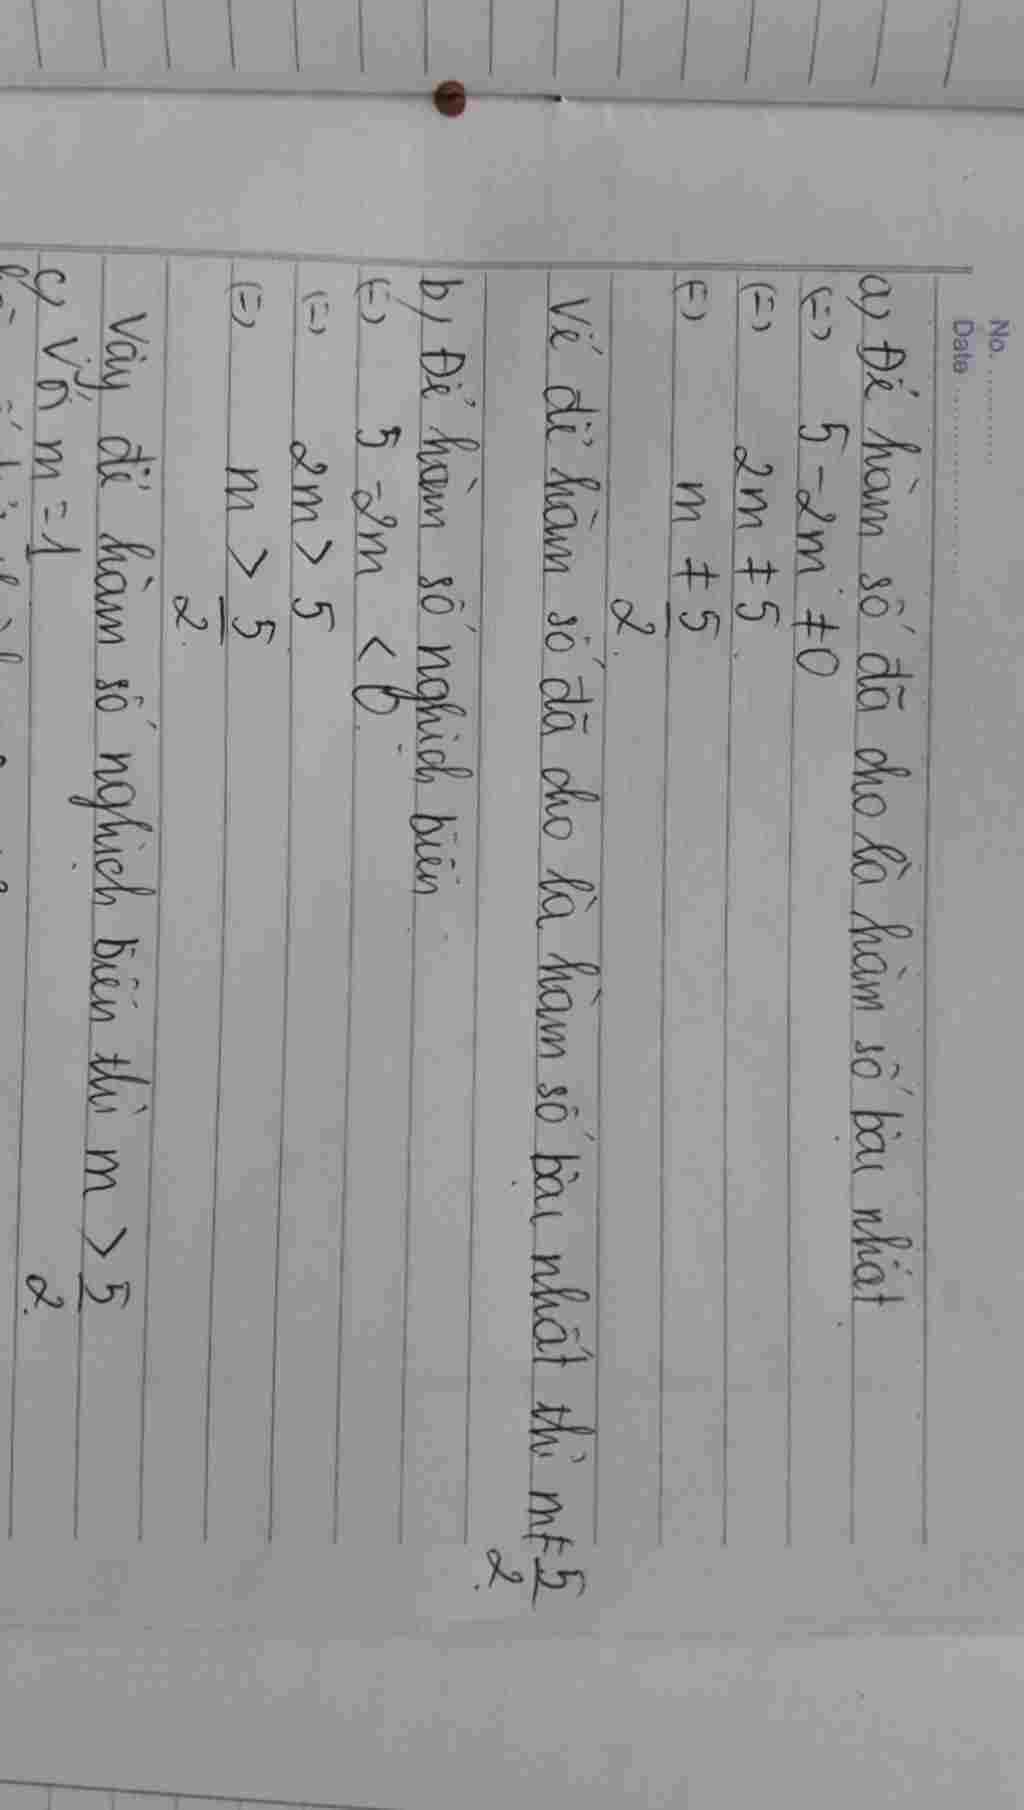 No. ...........
Date ......................
a) Để hàm số đã cho là hàm số bậc nhất
(=) 5-2m ≠0
(=) 2m ≠ 5
(=) m ≠ 5/2
Vế để hàm số đã cho là hàm số bậc nhất thì m≠ 5/2.
b) Để hàm số nghịch biến
(=) 5-2m < 0
(=) 2m > 5
(=) m > 5/2
Vậy để hàm số nghịch biến thì m > 5/2.
c) Với m = 1